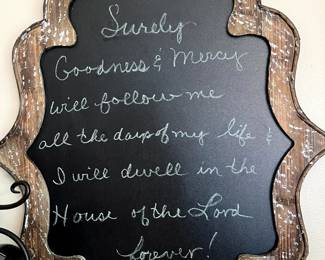 Surely
Goodness & Mercy
will follow me
all the days of my life &
I will dwell in the
House of the Lord
forever!